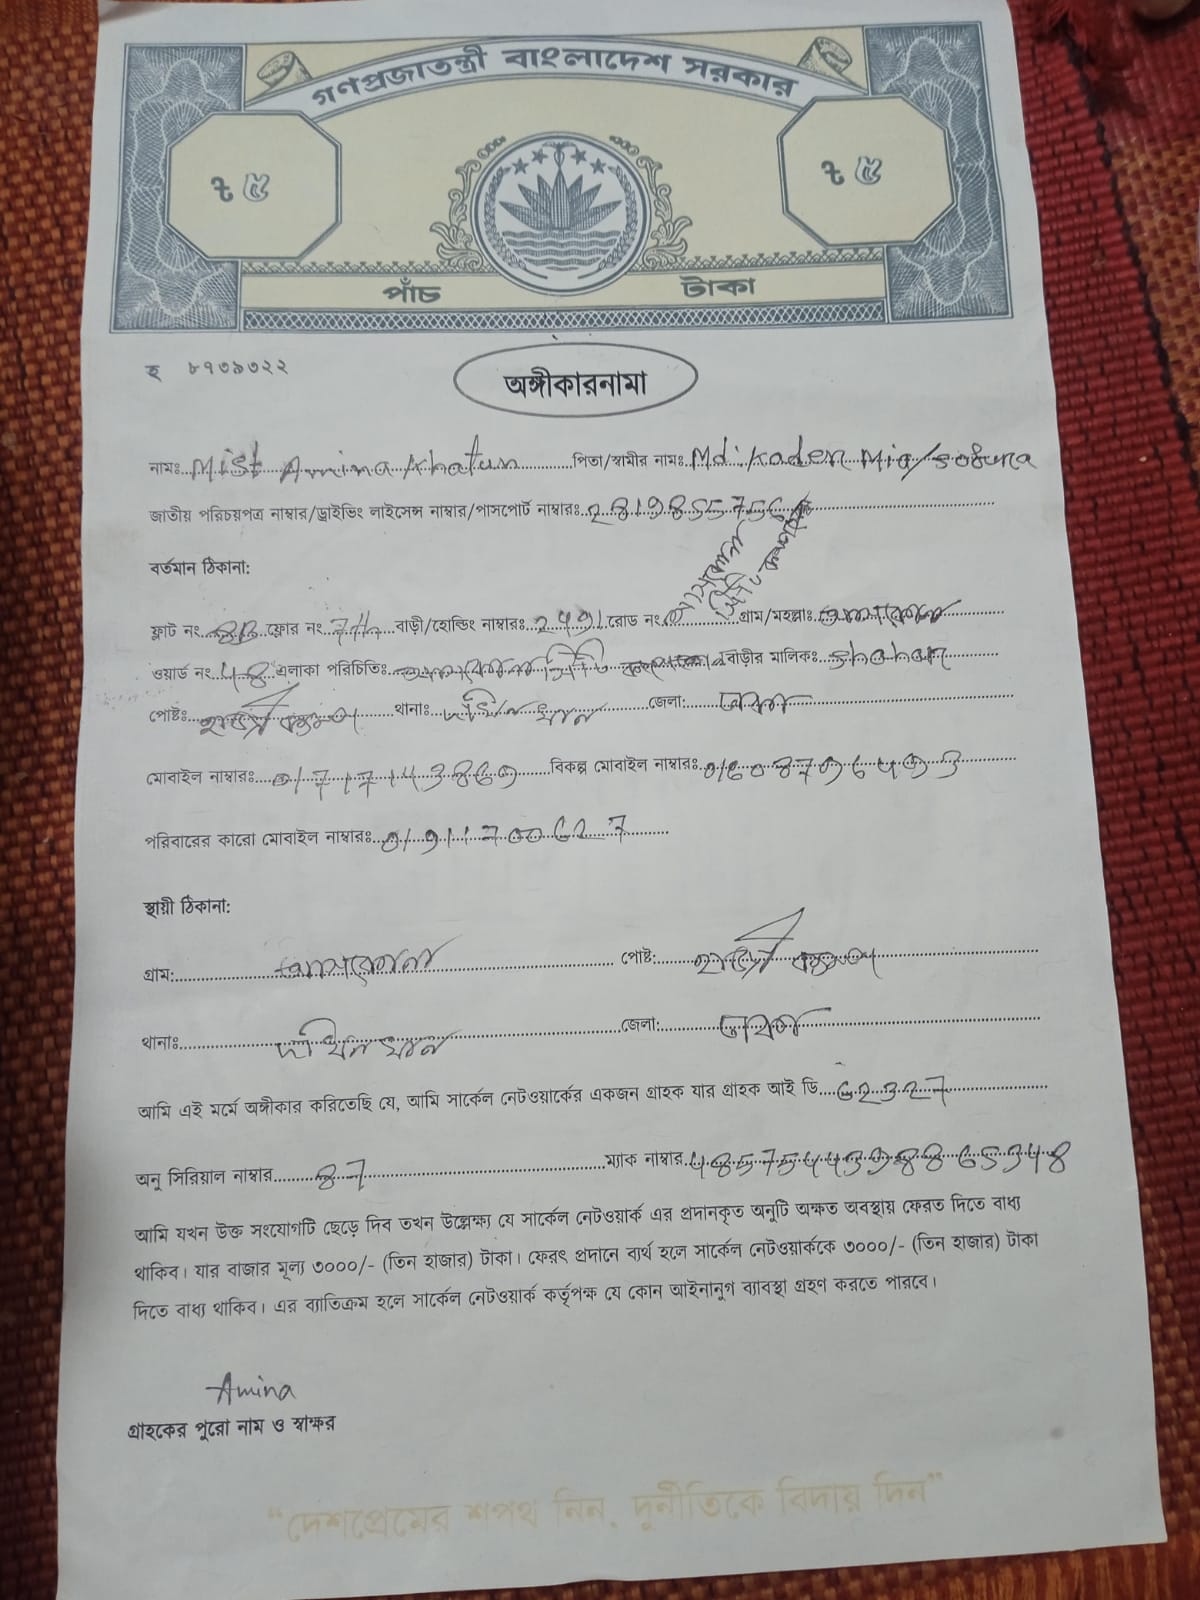 গণপ্রজাতন্ত্রী বাংলাদেশ সরকার
৳ ৫
৳ ৫
পাঁচ টাকা
হ ৮৭৩৯৩২২
অঙ্গীকারনামা
নামঃ Mist Amina Khatun পিতা/স্বামীর নামঃ Md. Kader Mia/
জাতীয় পরিচয়পত্র নাম্বার/ড্রাইভিং লাইসেন্স নাম্বার/পাসপোর্ট নাম্বারঃ
বর্তমান ঠিকানা:
ফ্লাট নং 8B ফ্লোর নং 7th বাড়ী/হোল্ডিং নাম্বারঃ 2491 রোড নং গ্রাম/মহল্লাঃ
ওয়ার্ড নং 48 এলাকা পরিচিতিঃ বাড়ীর মালিকঃ
পোষ্টঃ থানাঃ দক্ষিনখান জেলা: ঢাকা
মোবাইল নাম্বারঃ বিকল্প মোবাইল নাম্বারঃ
পরিবারের কারো মোবাইল নাম্বারঃ 01911700627
স্থায়ী ঠিকানা:
গ্রাম: পোষ্ট:
থানাঃ দক্ষিনখান জেলা: ঢাকা
আমি এই মর্মে অঙ্গীকার করিতেছি যে, আমি সার্কেল নেটওয়ার্কের একজন গ্রাহক যার গ্রাহক আই ডি 62327
অনু সিরিয়াল নাম্বার 87 ম্যাক নাম্বার
আমি যখন উক্ত সংযোগটি ছেড়ে দিব তখন উল্লেক্ষ্য যে সার্কেল নেটওয়ার্ক এর প্রদানকৃত অনুটি অক্ষত অবস্থায় ফেরত দিতে বাধ্য
থাকিব। যার বাজার মূল্য ৩০০০/- (তিন হাজার) টাকা। ফেরৎ প্রদানে ব্যর্থ হলে সার্কেল নেটওয়ার্ককে ৩০০০/- (তিন হাজার) টাকা
দিতে বাধ্য থাকিব। এর ব্যাতিক্রম হলে সার্কেল নেটওয়ার্ক কর্তৃপক্ষ যে কোন আইনানুগ ব্যাবস্থা গ্রহণ করতে পারবে।
Amina
গ্রাহকের পুরো নাম ও স্বাক্ষর
“দেশপ্রেমের শপথ নিন, দুর্নীতিকে বিদায় দিন”